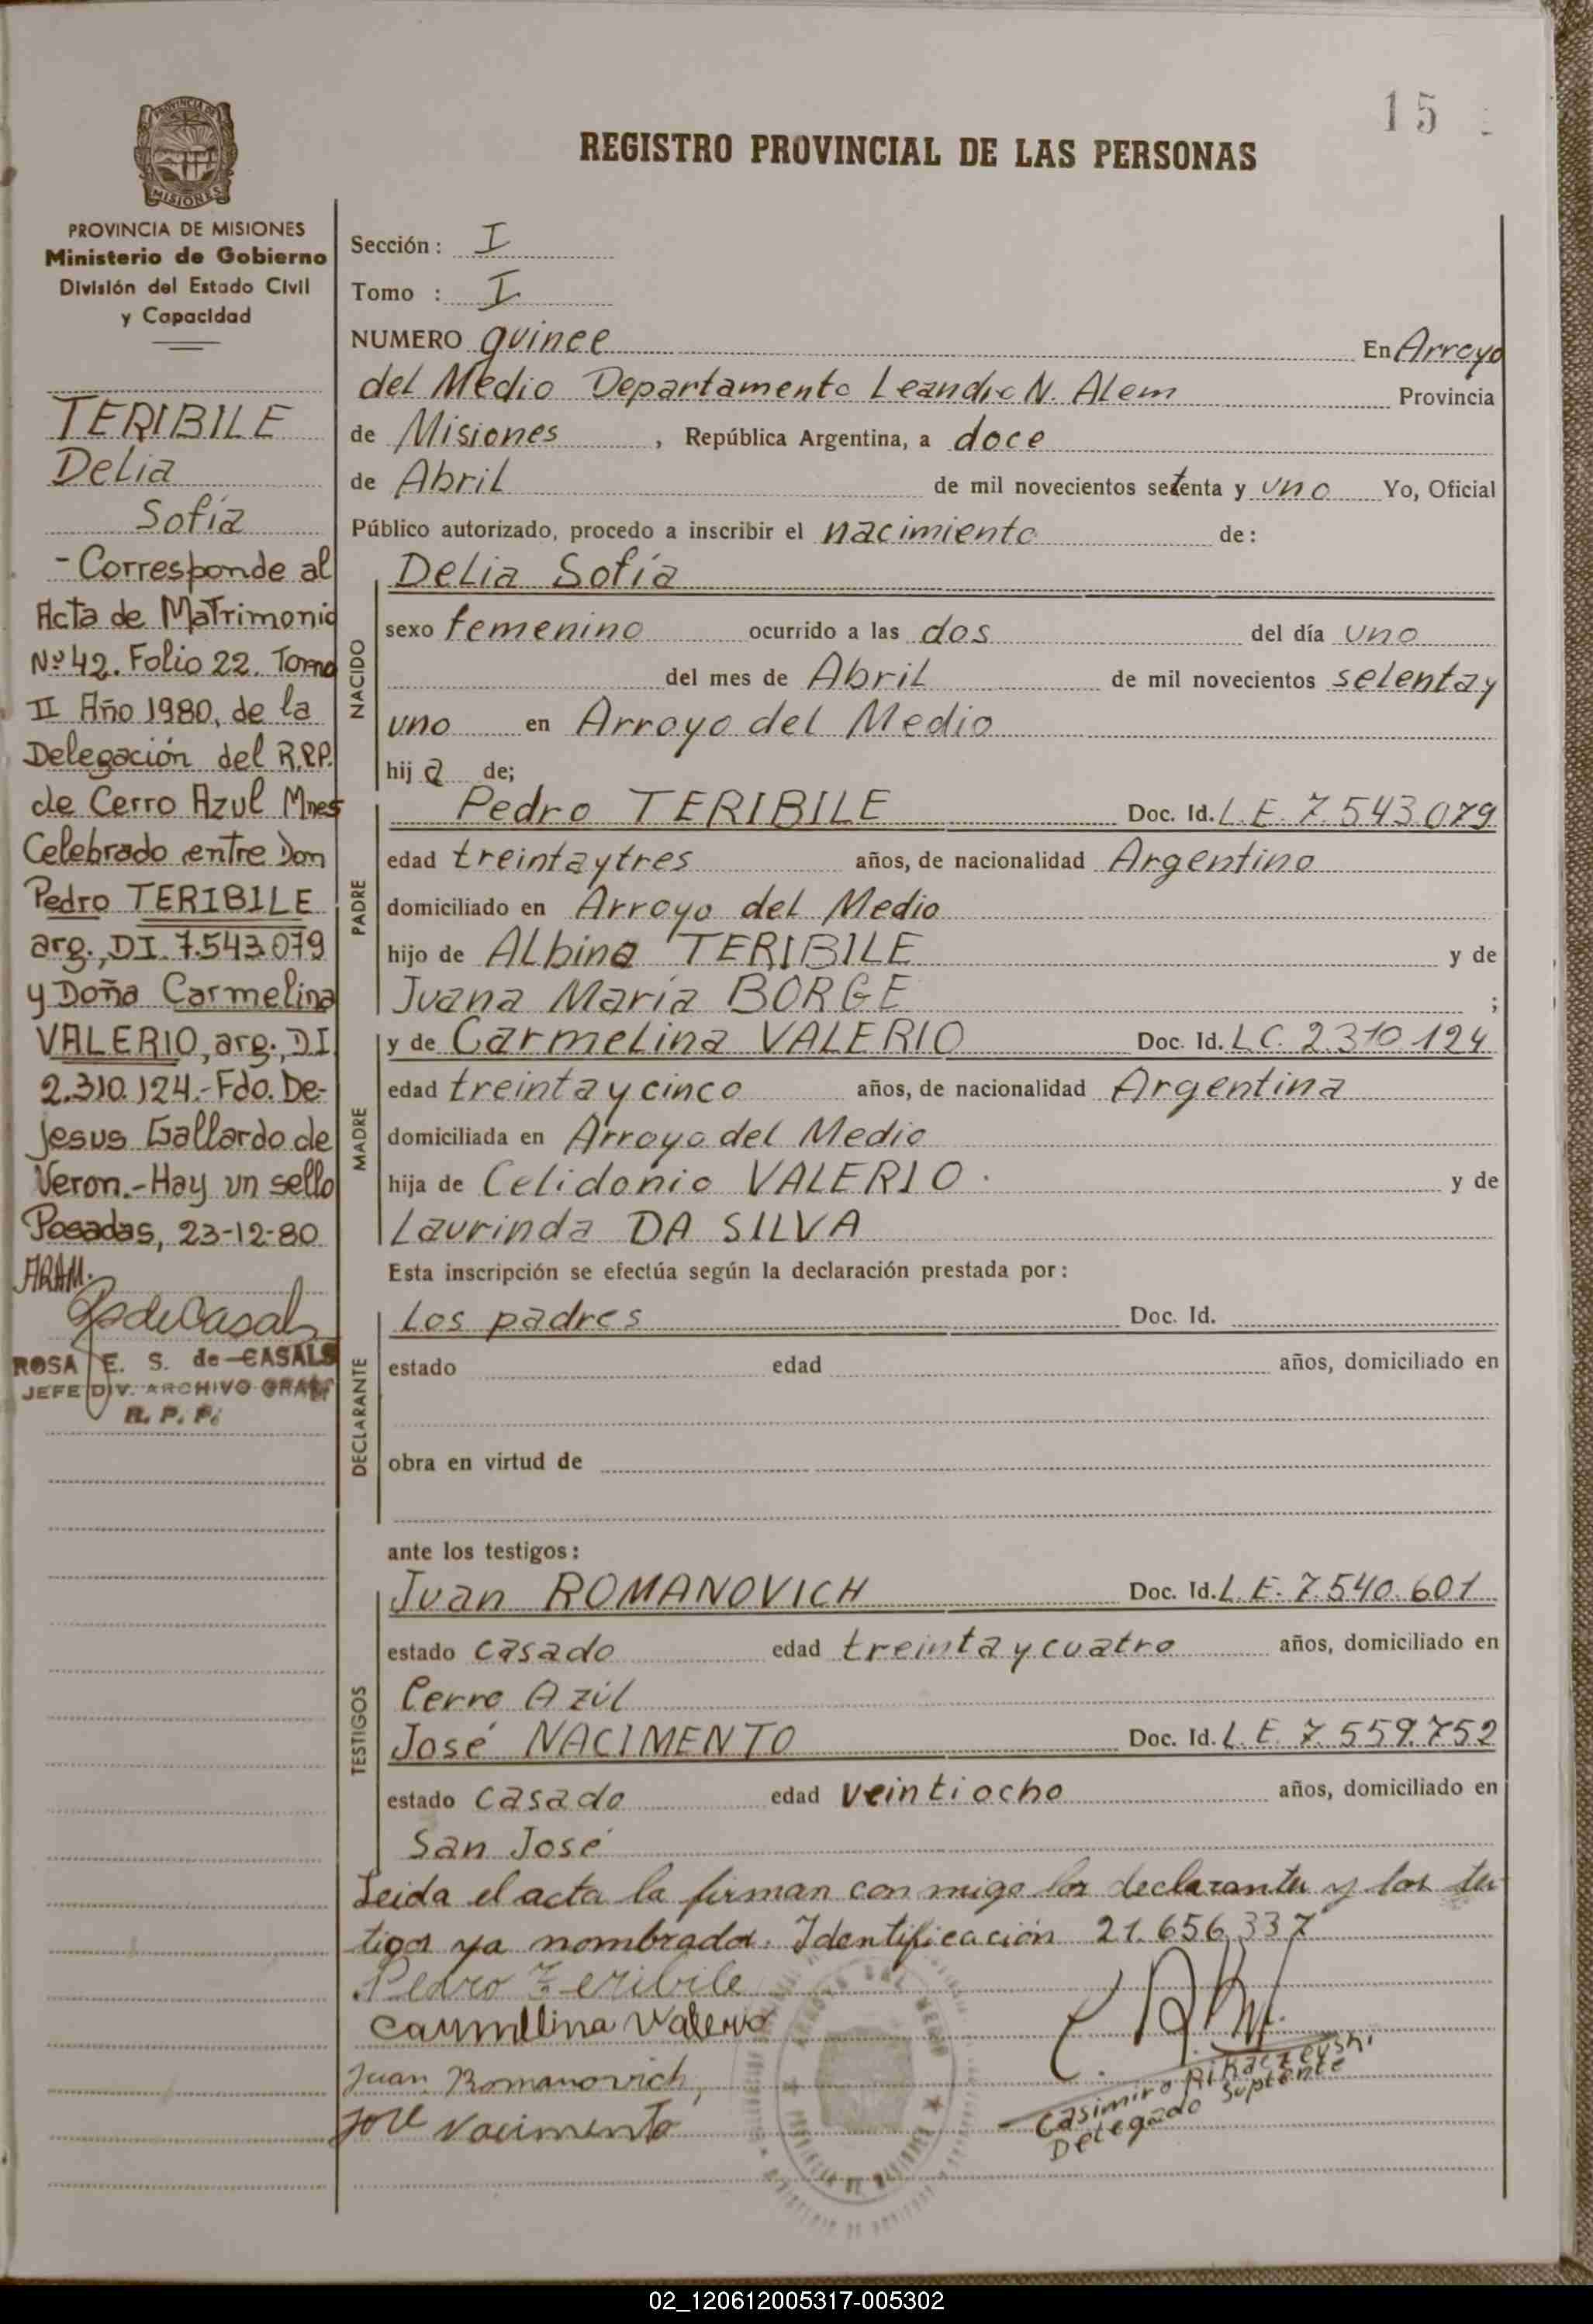 15
PROVINCIA DE
MISIONES
REGISTRO PROVINCIAL DE LAS PERSONAS
PROVINCIA DE MISIONES
Ministerio de Gobierno
División del Estado Civil
y Capacidad
TERIBILE
Delia
Sofía
- Corresponde al
Acta de Matrimonio
Nº 42. Folio 22. Tomo
II Año 1980, de la
Delegación del R.P.P.
de Cerro Azul Mnes
Celebrado entre Don
Pedro TERIBILE
arg., DI. 7.543.079
y Doña Carmelina
VALERIO, arg., DI
2.310.124.- Fdo. De-
Jesus Gallardo de
Veron.- Hay un sello
Posadas, 23-12-80
ARAM.
ROSA E. S. de CASALS
JEFE DIV. ARCHIVO GRAL
R. P. P.
Sección: I
Tomo : I
NUMERO quince En Arroyo
del Medio Departamento Leandro N. Alem Provincia
de Misiones, República Argentina, a doce
de Abril de mil novecientos setenta y uno Yo, Oficial
Público autorizado, procedo a inscribir el nacimiento de:
NACIDO
Delia Sofía
sexo femenino ocurrido a las dos del día uno
del mes de Abril de mil novecientos setenta y
uno en Arroyo del Medio
hij a de;
PADRE
Pedro TERIBILE Doc. Id. L.E. 7.543.079
edad treinta y tres años, de nacionalidad Argentino
domiciliado en Arroyo del Medio
hijo de Albino TERIBILE y de
Juana María BORGE ;
MADRE
y de Carmelina VALERIO Doc. Id. L.C. 2.310.124
edad treinta y cinco años, de nacionalidad Argentina
domiciliada en Arroyo del Medio
hija de Celidonio VALERIO. y de
Laurinda DA SILVA
Esta inscripción se efectúa según la declaración prestada por:
DECLARANTE
Los padres Doc. Id.
estado edad años, domiciliado en
obra en virtud de
ante los testigos:
TESTIGOS
Juan ROMANOVICH Doc. Id. L.E. 7.540.601
estado casado edad treinta y cuatro años, domiciliado en
Cerro Azul
José NACIMENTO Doc. Id. L.E. 7.559.752
estado casado edad veintiocho años, domiciliado en
San José
Leida el acta la firman con migo los declarantes y los tes
tigos ya nombrados. Identificación 21.656,337
Pedro Teribile
Carmelina Valerio
Juan Romanovich,
José Nacimento
Delegado Suplente
02_120612005317-005302